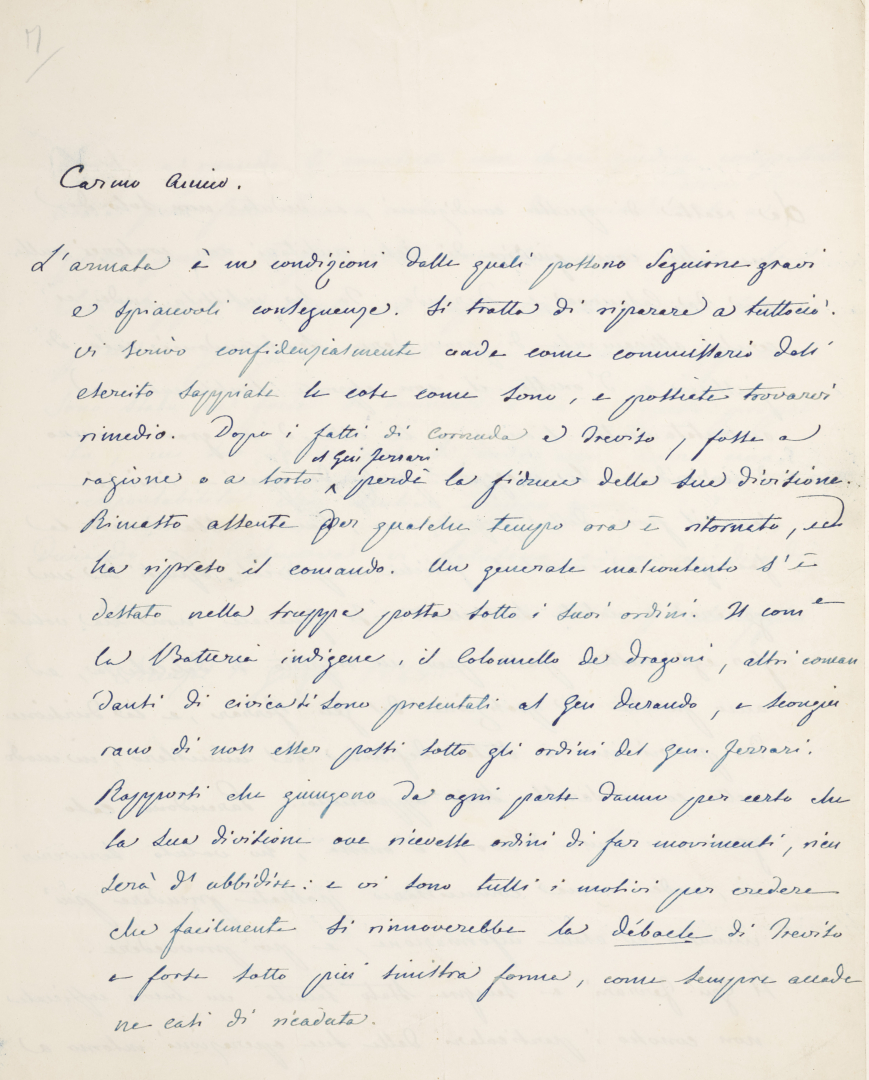 Carmo Amico.
L'armata è in condizioni dalle quali possono seguirne gravi
e spiacevoli conseguenze. Si tratta di riparare a tuttociò.
Vi scrivo confidenzialmente onde come commissario dell'
esercito sappiate le cose come sono, e possiate trovarvi
rimedio. Dopo i fatti di Cornuda e Treviso, fosse a
il Gen Ferrari
ragione o a torto perdè la fiducia della sua divisione.
Rimasto assente per qualche tempo ora è ritornato, ed
ha ripreso il comando. Un generale malcontento s'è
destato nella truppa posta sotto i suoi ordini. Il come
la Batteria indigena, il Colonnello de Dragoni, altri coman
danti di civica si sono presentati al Gen Durando, e scongiu
rano di non esser posti sotto gli ordini del gen. Ferrari.
Rapporti che giungono da ogni parte danno per certo che
la sua divisione ove ricevesse ordini di far movimenti, ricu
serà d'ubbidire: e vi sono tutti i motivi per credere
che facilmente si rinnoverebbe la débacle di Treviso
e forse sotto più sinistra forma, come sempre accade
ne casi di ricaduta.